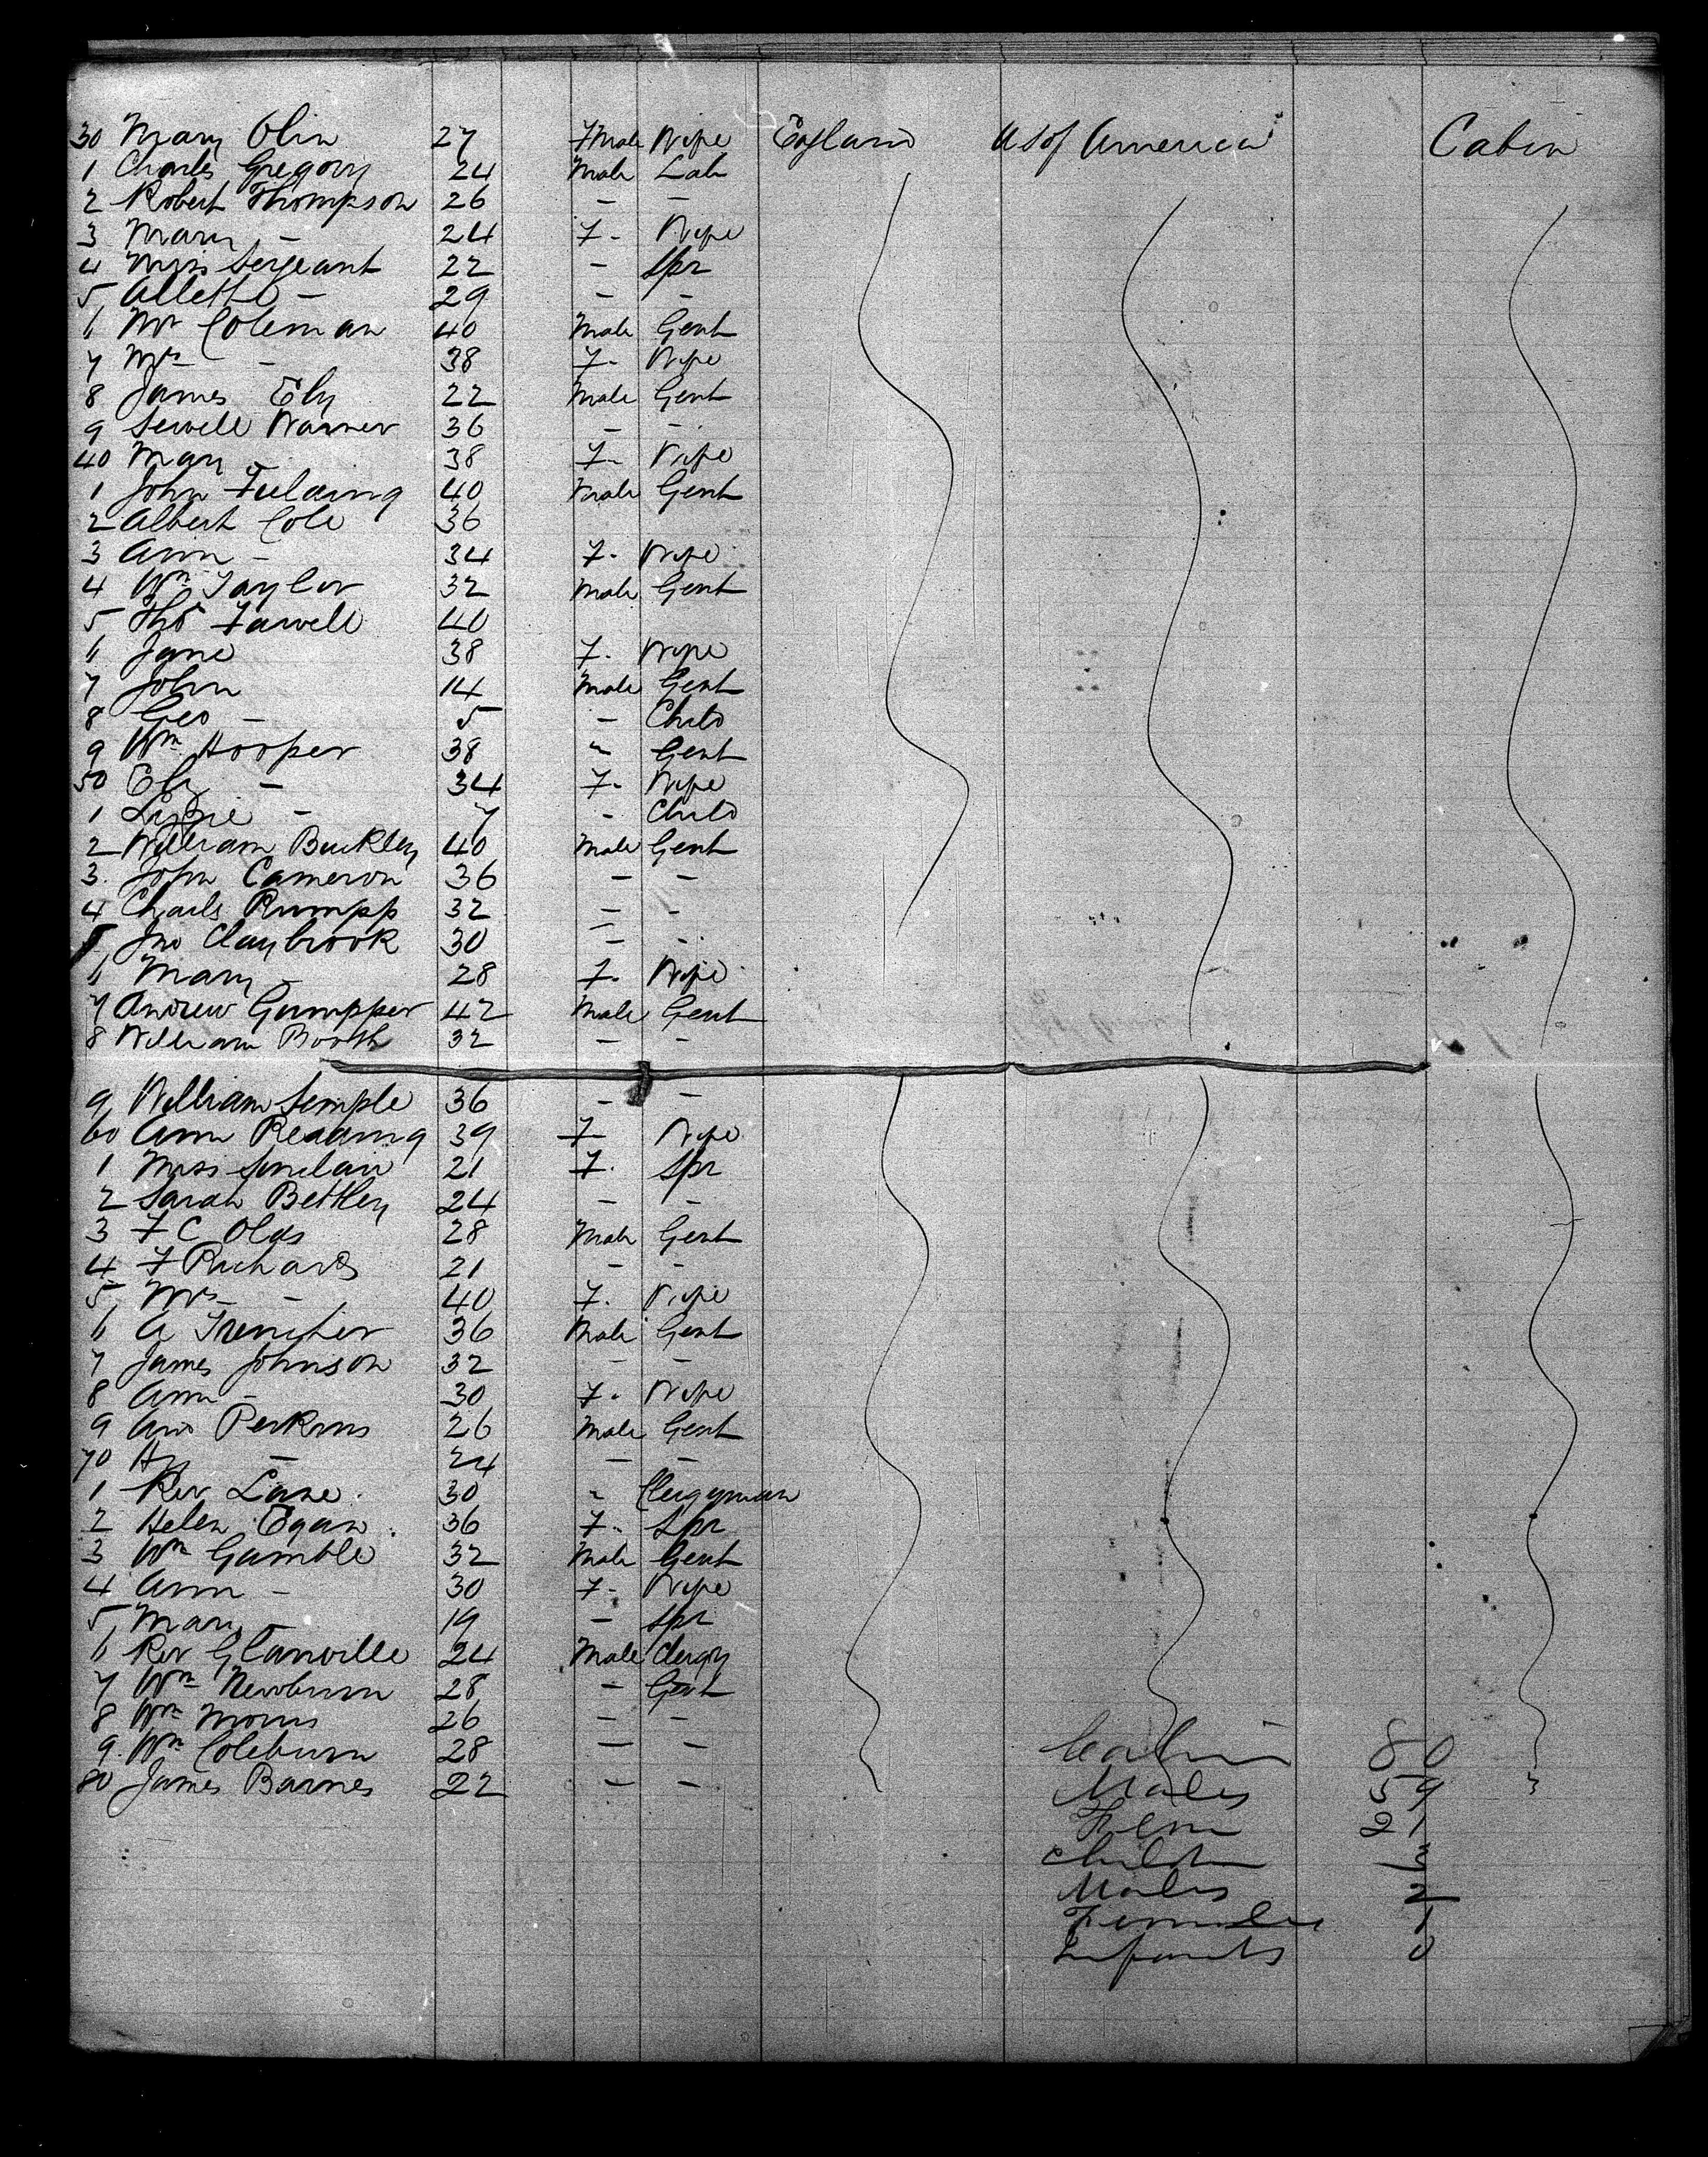 30 Mary Olin 27 Fmale Wife England U S of America Cabin
1 Charles Gregory 24 Male Lab
2 Robert Thompson 26 - -
3 Mary - 24 F- Wife
4 Miss Sergeant 22 - Spr
5 - 29 - -
6 Mr Coleman 40 Male Gent
7 Mrs - 38 F- Wife
8 James Ely 22 Male Gent
9 Sewell Warner 36 - -
40 Mary - 38 F- Wife
1 John Fielding 40 Male Gent
2 Albert Cole 36
3 Ann - 34 F- Wife
4 Wm Taylor 32 Male Gent
5 Tho Farwell 40
6 Jane 38 F- Wife
7 John 14 Male Gent
8 Geo - 5 - Child
9 Wm Hooper 38 " Gent
50 Eliz - 34 F- Wife
1 Lizzie - 7 - Child
2 William Buckley 40 Male Gent
3 John Cameron 36 - -
4 Charls Rumpp 32 - -
5 Jno Claybrook 30 - -
6 Mary - 28 F- Wife
7 Andrew Gumpper 42 Male Gent
8 William Booth 32 - -
9 William Semple 36 - -
60 Ann Reading 39 F Wife
1 Miss Sinclair 21 F. Spr
2 Sarah Bettley 24 - -
3 F C Olds 28 Male Gent
4 F Richards 21 - -
5 Mrs - 40 F. Wife
6 A 36 Male Gent
7 James Johnson 32 - -
8 Ann - 30 F- Wife
9 And Perkins 26 Male Gent
70 Hy - 24 - -
1 Rev Lane 30 " Clergyman
2 Helen Egan 36 F- Spr
3 Wm Gamble 32 Male Gent
4 Ann - 30 F- Wife
5 Mary - 19 - Spr
6 Rev Glanville 24 Male Clergy
7 Wm Newburn 28 - Gent
8 Wm Morris 26 - -
9 Wm Coleburn 28 - -
80 James Barnes 22 - -
Cabin 80
Males 59
Fem 21
Children 3
Males 2
Females 1
Infants 0